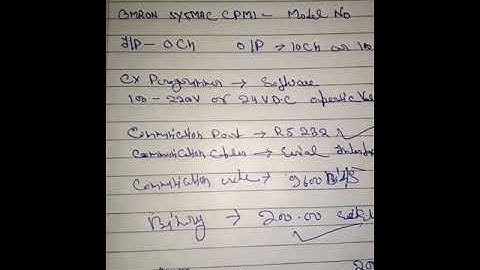 OMRON SYSMAC CPM1 - Model No
I/P - 0Ch O/P > 10Ch or
CX Programmer → Software
100 - 220V or 24 V D.C
Communication Port → RS 232
Communication Cable → Serial
Communication rate → 9600 Bit/s
→ 200.00